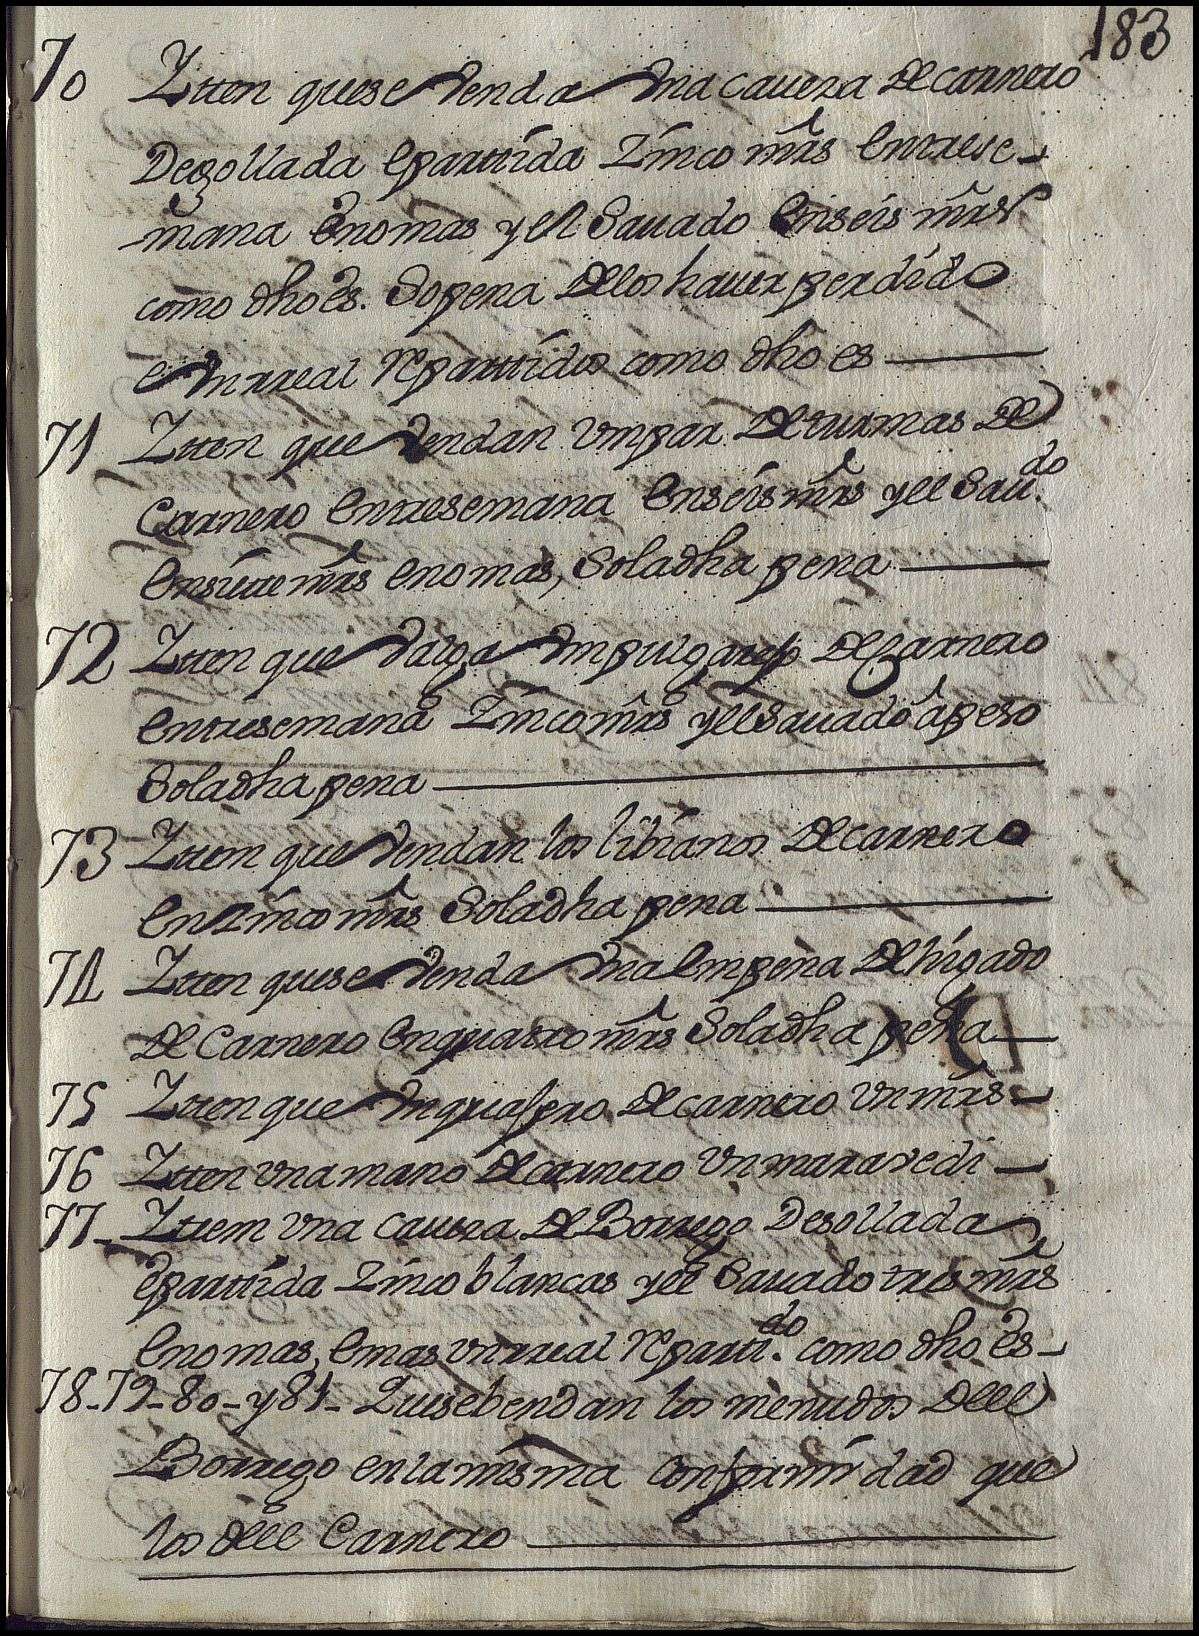 183
70 Ytten que se venda vna cauesa de carnero
Degollada e parttida Zinco mrs entrese-
mana e no mas y el Sauado en seis mrs
como dho es. So pena de los hauer perdido
e vn real repartidos como dho es
71 Ytten que vendan vn par de turmas de
Carnero entresemana en seis mrs y el Sau.do
en siette mrs e no mas, So la dha pena
72 Ytten que valga vn pulgarejo de carnero
entresemana Zinco mrs y el Sauado a peso
So la dha pena
73 Ytten que vendan los libianos de carnero
en Zinco mrs So la dha pena
74 Ytten que se venda vna empeña de higado
de Carnero en quatro mrs So la dha pena
75 Ytten que vn quaxero de carnero vn mrs
76 Ytten vna mano de carnero vn maravedi
77 Yttem vna cauesa de Borrego Desollada
e parttida Zinco blancas y el Sauado tres mrs
e no mas, e mas vn real reparti.do como dho es
78-79-80-y 81- Que se bendan los menudos del
Borrego en la misma conformidad que
los del Carnero